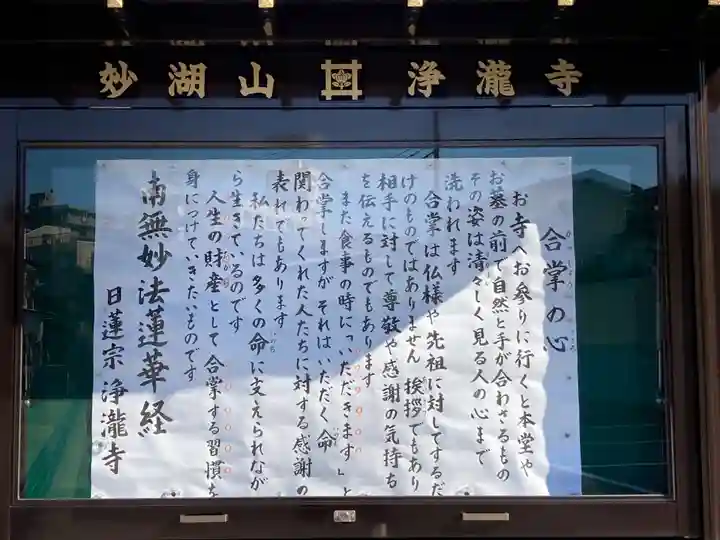 妙湖山 浄瀧寺
合掌の心
お寺へお参りに行くと本堂や
お墓の前で自然と手が合わさるもの
その姿は清々しく見る人の心まで
洗われます
合掌は仏様や先祖に対してするだ
けのものではありません 挨拶でもあり
相手に対して尊敬や感謝の気持ち
を伝えるものでもあります
また食事の時に「いただきます」と
合掌しますが それはいただく命
関わってくれた人たちに対する感謝の
表れでもあります
私たちは多くの命に支えられなが
ら生きているのです
人生の財産として合掌する習慣を
身につけていきたいものです
南無妙法蓮華経
日蓮宗 浄瀧寺